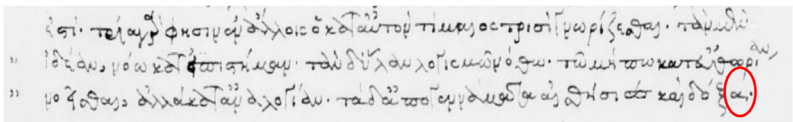 ἐστί· τρία γάρ φησιν ἐν ἄλλοις ὁ κατ' αὐτὸν τίμαιος τρισὶ γνωρίζεσθαι· τὰν μὲν
" ἰδέαν, νόω κατ' ἐπιστήμαν· τὰν δ' ὕλαν λογισμῶ νόθω· τῶ μήπω κατ' εὐθυωρίαν
" νοεῖσθαι, ἀλλὰ κατ' ἀναλογίαν· τὰ δ' ἀπογεννάματα αἰσθήσει καὶ δόξα·